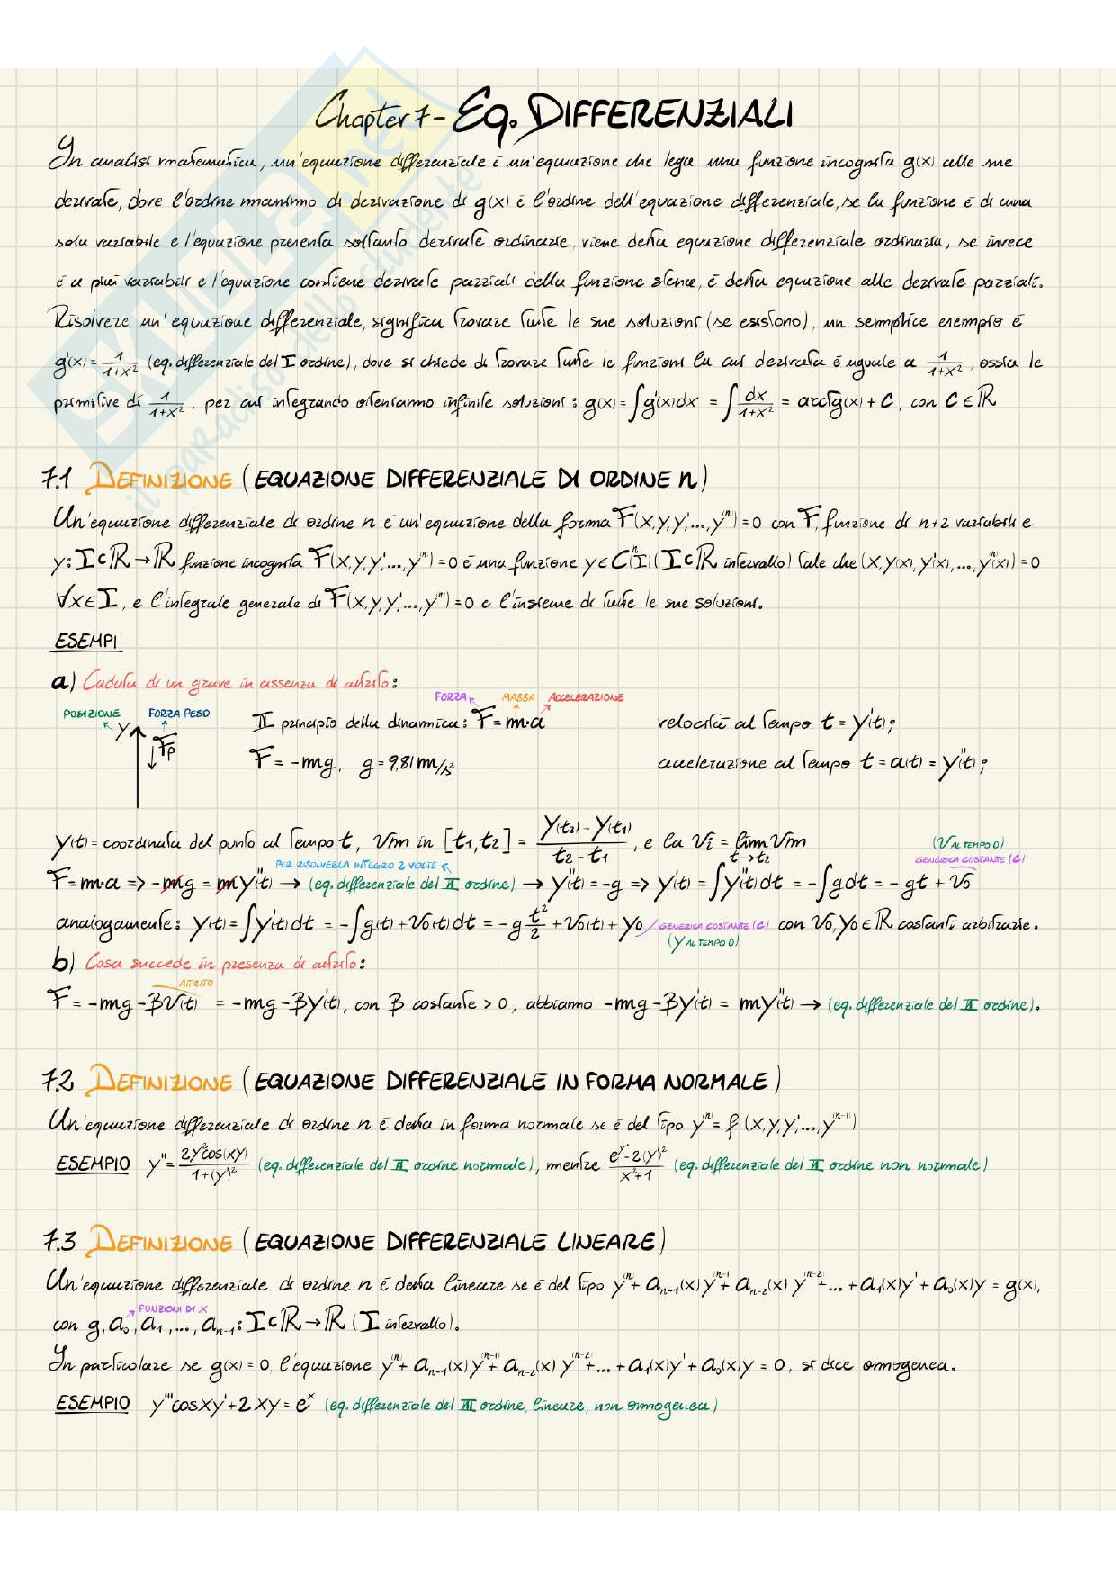 Chapter 7 - Eq. DIFFERENZIALI
In analisi matematica, un'equazione differenziale è un'equazione che lega una funzione incognita g(x) alle sue
derivate, dove l'ordine massimo di derivazione di g(x) è l'ordine dell'equazione differenziale, se la funzione è di una
sola variabile e l'equazione presenta soltanto derivate ordinarie, viene detta equazione differenziale ordinaria, se invece
è a più variabili e l'equazione contiene derivate parziali della funzione stessa, è detta equazione alle derivate parziali.
Risolvere un'equazione differenziale, significa trovare tutte le sue soluzioni (se esistono), un semplice esempio è
g'(x) = 1/1+x² (eq. differenziale del I ordine), dove si chiede di trovare tutte le funzioni la cui derivata è uguale a 1/1+x², ossia le
primitive di 1/1+x², per cui integrando otteniamo infinite soluzioni: g(x) = ∫g'(x)dx = ∫dx/1+x² = arctg(x) + C, con C ∈ ℝ
7.1 DEFINIZIONE (EQUAZIONE DIFFERENZIALE DI ORDINE n)
Un'equazione differenziale di ordine n è un'equazione della forma F(x,y,y',...,yⁿ) = 0 con F, funzione di n+2 variabili e
y: I⊂ℝ → ℝ funzione incognita F(x,y,y',...,yⁿ) = 0 è una funzione y ∈ Cⁿ(I) (I⊂ℝ intervallo) tale che (x,y(x),y'(x),...,yⁿ(x)) = 0
∀x∈I, e l'integrale generale di F(x,y,y',...,yⁿ) = 0 e l'insieme di tutte le sue soluzioni.
ESEMPI
a) Caduta di un grave in assenza di attrito:
FORZA MASSA ACCELERAZIONE
POSIZIONE FORZA PESO II principio della dinamica: F = m·a velocità al tempo t = y'(t);
y Fp F = -mg, g = 9,81 m/s² accelerazione al tempo t = a(t) = y''(t);
y(t) = coordinata del punto al tempo t, Vm in [t1,t2] = y(t2) - y(t1) / t2 - t1, e la Vi = lim Vm t→t2
(V AL TEMPO 0)
PER RISOLVERLA INTEGRO 2 VOLTE GENERICA COSTANTE (C)
F = m·a => -mg = my''(t) → (eq. differenziale del II ordine) → y''(t) = -g => y'(t) = ∫y''(t)dt = -∫gdt = -gt + V0
analogamente: y(t) = ∫y'(t)dt = -∫g(t) + V0(t)dt = -g t²/2 + V0(t) + y0 GENERICA COSTANTE (C) con V0, y0 ∈ ℝ costanti arbitrarie.
(Y AL TEMPO 0)
b) Cosa succede in presenza di attrito:
ATTRITO
F = -mg - BV(t) = -mg - By'(t), con B costante > 0, abbiamo -mg - By'(t) = my''(t) → (eq. differenziale del II ordine).
7.2 DEFINIZIONE (EQUAZIONE DIFFERENZIALE IN FORMA NORMALE)
Un'equazione differenziale di ordine n è detta in forma normale se è del tipo y⁽ⁿ⁾ = f(x,y,y',...,y⁽ⁿ⁻¹⁾)
ESEMPIO y'' = 2y²cos(xy)/1+(y')² (eq. differenziale del II ordine normale), mentre e^y''-2(y')²/x²+1 (eq. differenziale del II ordine non normale)
7.3 DEFINIZIONE (EQUAZIONE DIFFERENZIALE LINEARE)
Un'equazione differenziale di ordine n è detta lineare se è del tipo y⁽ⁿ⁾ + aₙ₋₁(x)y⁽ⁿ⁻¹⁾ + aₙ₋₂(x)y⁽ⁿ⁻²⁾ + ... + a₁(x)y' + a₀(x)y = g(x),
FUNZIONI DI X
con g, a₀, a₁, ..., aₙ₋₁: I⊂ℝ → ℝ (I intervallo).
In particolare se g(x) = 0, l'equazione y⁽ⁿ⁾ + aₙ₋₁(x)y⁽ⁿ⁻¹⁾ + aₙ₋₂(x)y⁽ⁿ⁻²⁾ + ... + a₁(x)y' + a₀(x)y = 0, si dice omogenea.
ESEMPIO y'''cosxy' + 2xy = eˣ (eq. differenziale del III ordine, lineare, non omogenea)